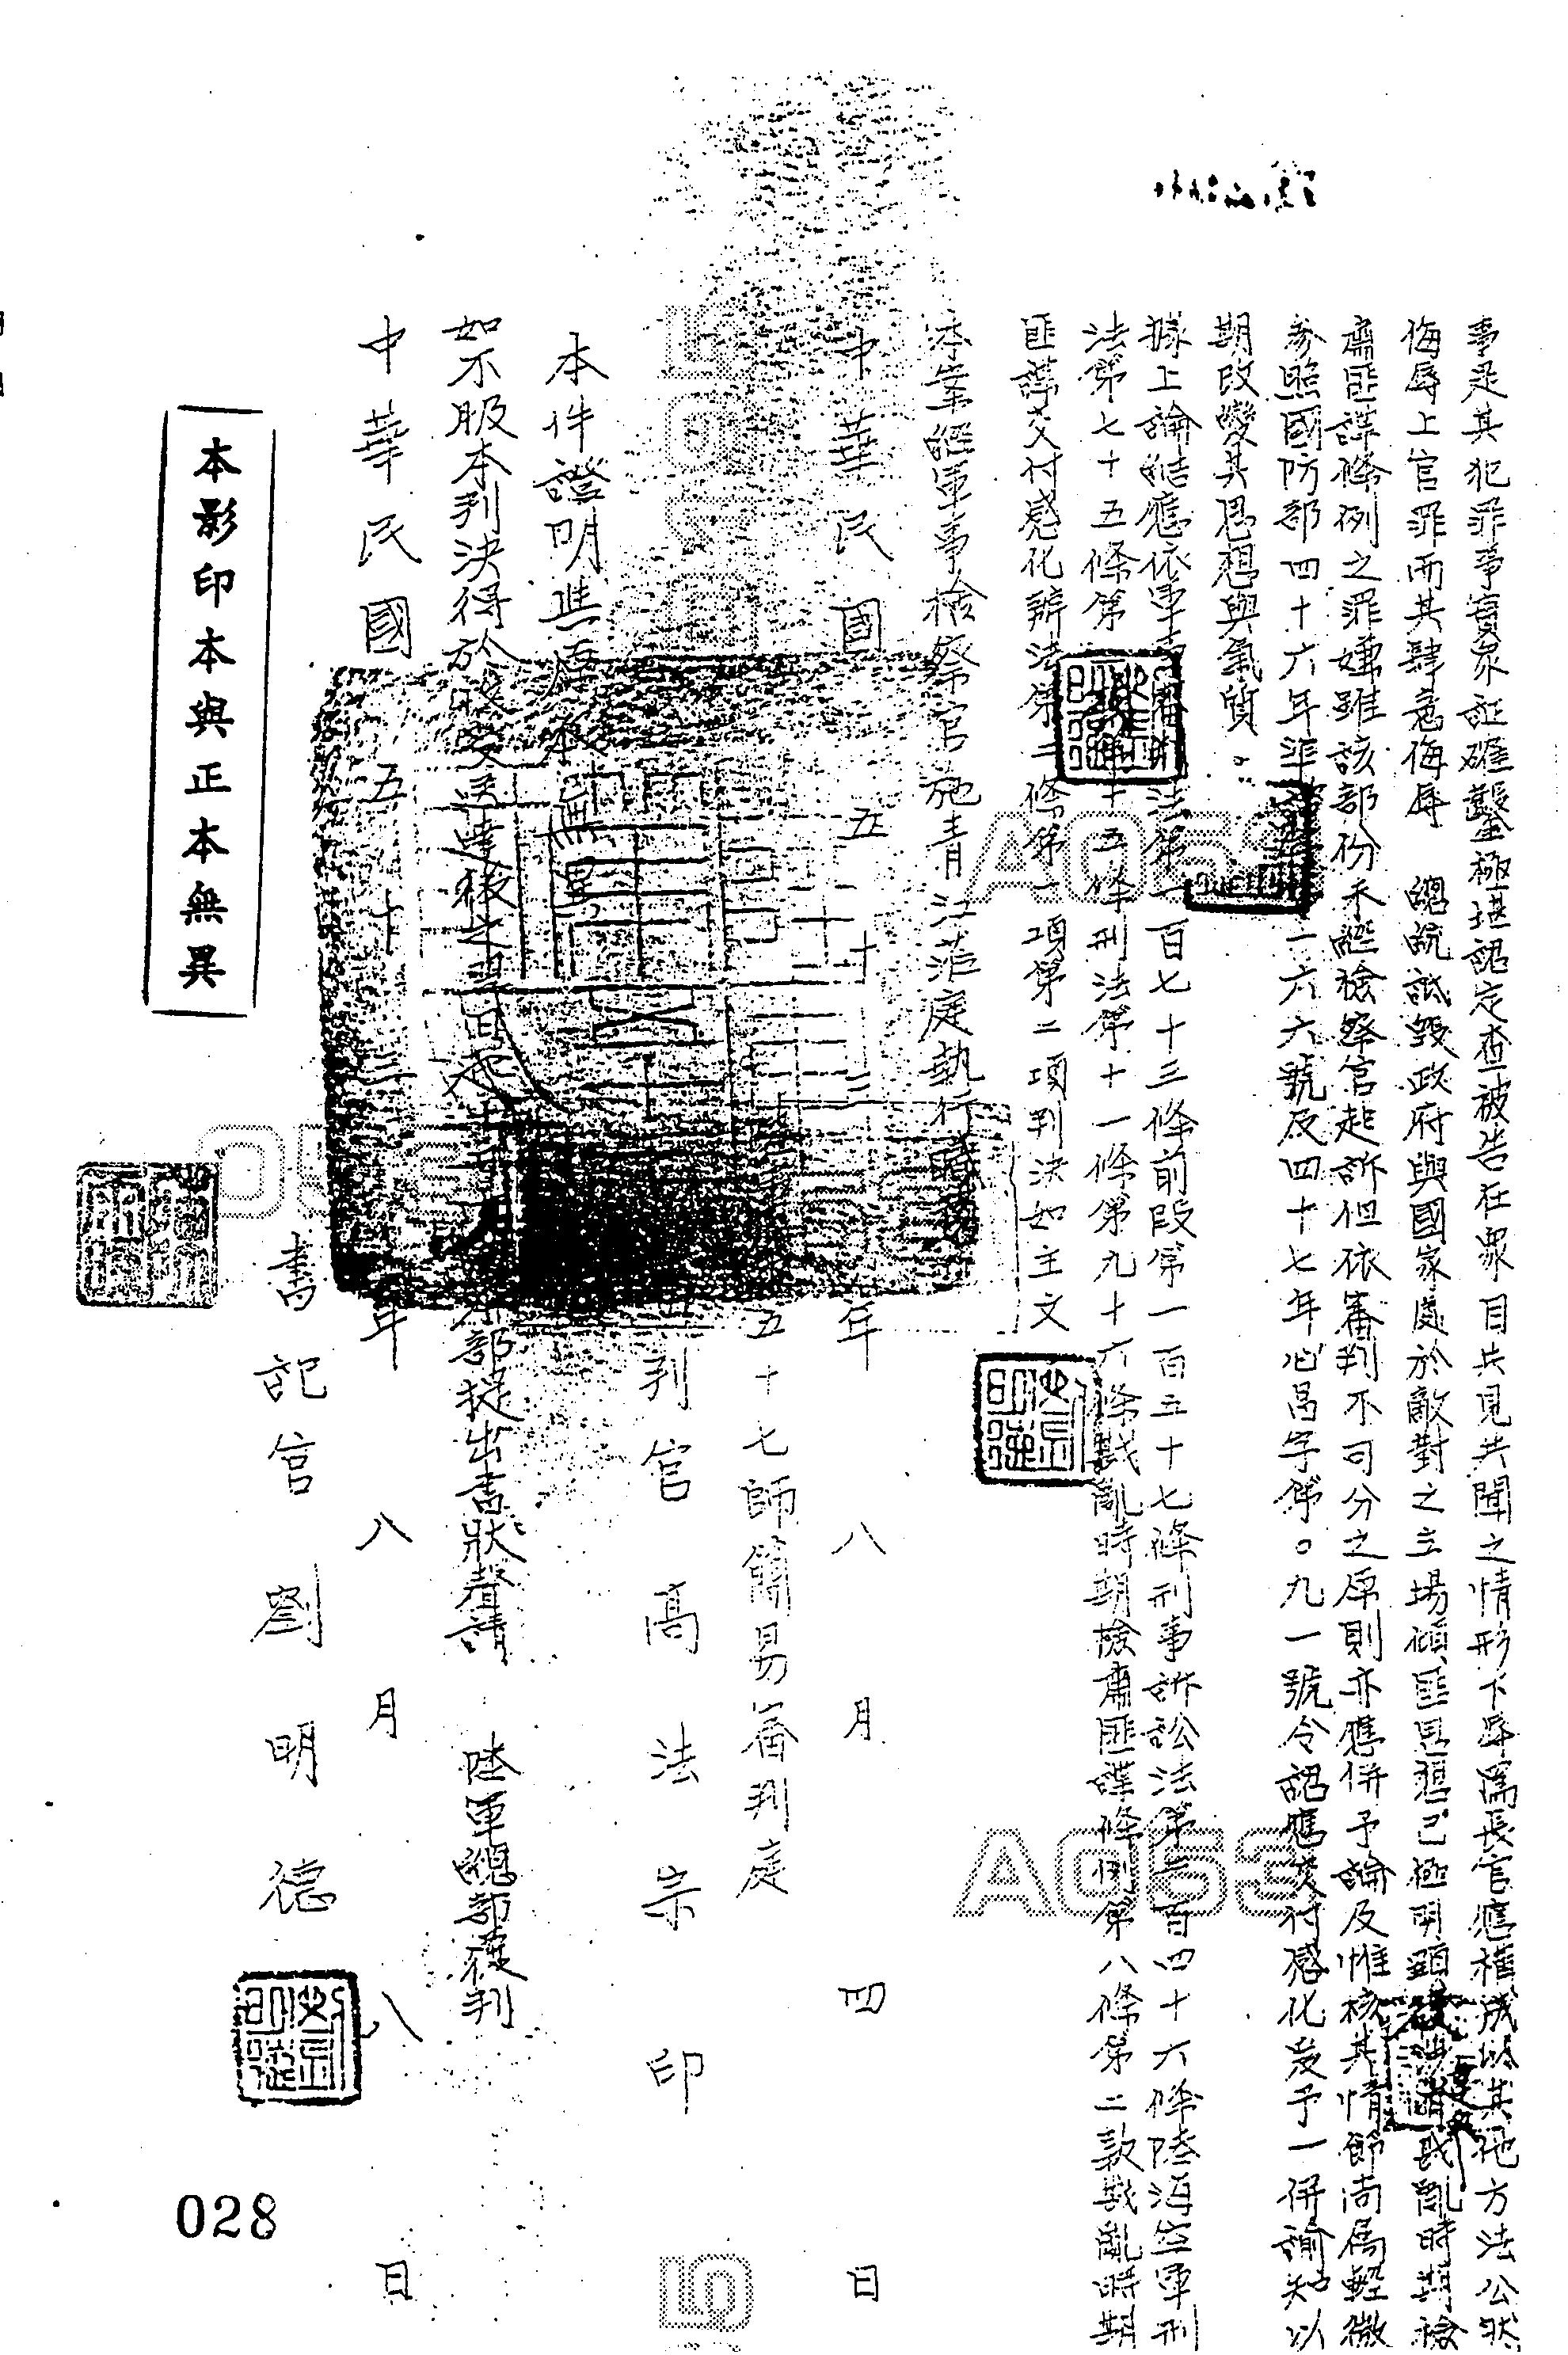 事是其犯罪事實眾証確鑿極堪認定查被告在眾目共見共聞之情形下辱罵長官應構成以其他方法公然
侮辱上官罪而其肆意侮辱 總統詆毀政府與國家處於敵對之立場傾匪思想已極明顯戡亂時期檢
肅匪諜條例之罪嫌雖該部份未經檢察官起訴但依審判不可分之原則亦應併予論及惟核其情節尚屬輕微
參照國防部四十六年一六六號及四十七年心昌字第〇九一號令認應交付感化爰予一併諭知以
期改變其思想與氣質。
據上論結應依軍事審判法第一百七十三條前段第一百五十七條刑事訴訟法第二百四十六條陸海空軍刑
法第七十五條第十五條刑法第十一條第九十六條戡亂時期檢肅匪諜條例第八條第二款戡亂時期
匪諜交付感化辦法第二條第一項第二項判決如主文
本案經軍事檢察官施青江蒞庭執行職務
中華民國五十三年八月四日
五十七師簡易審判庭
判官高法宗印
本件證明與原本無異
如不服本判決得於收受送達後之翌日起部提出書狀聲請 陸軍總部覆判
中華民國五十三年八月八日
書記官劉明德
本影印本與正本無異
A053
A053
028